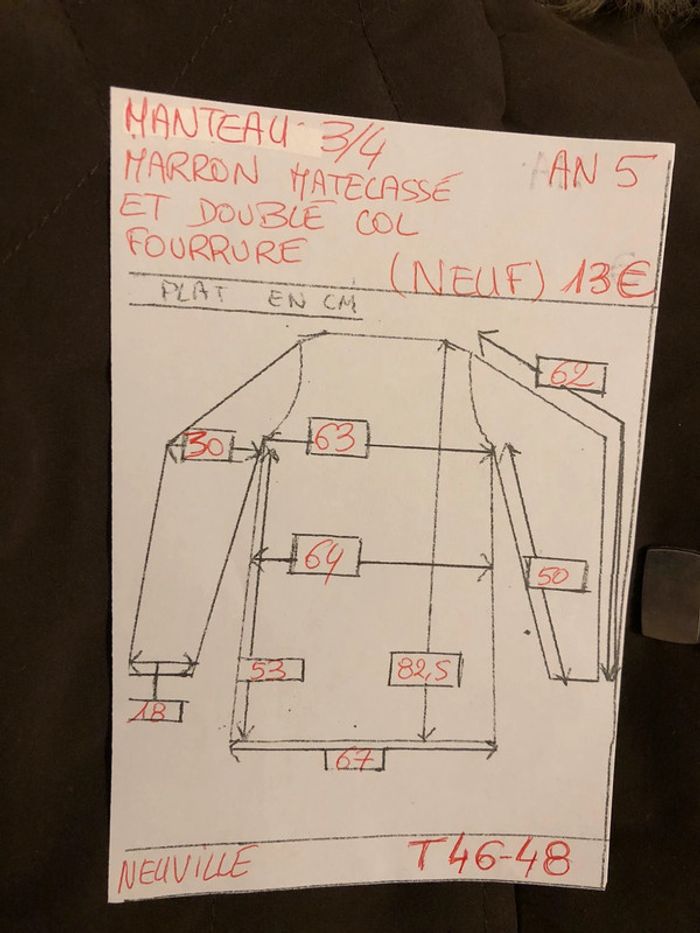 MANTEAU 3/4
MARRON MATELASSÉ AN 5
ET DOUBLÉ COL
FOURRURE
(NEUF) 13€
PLAT EN CM
62
30
63
64
50
53
82,5
18
67
NEUVILLE
T46-48